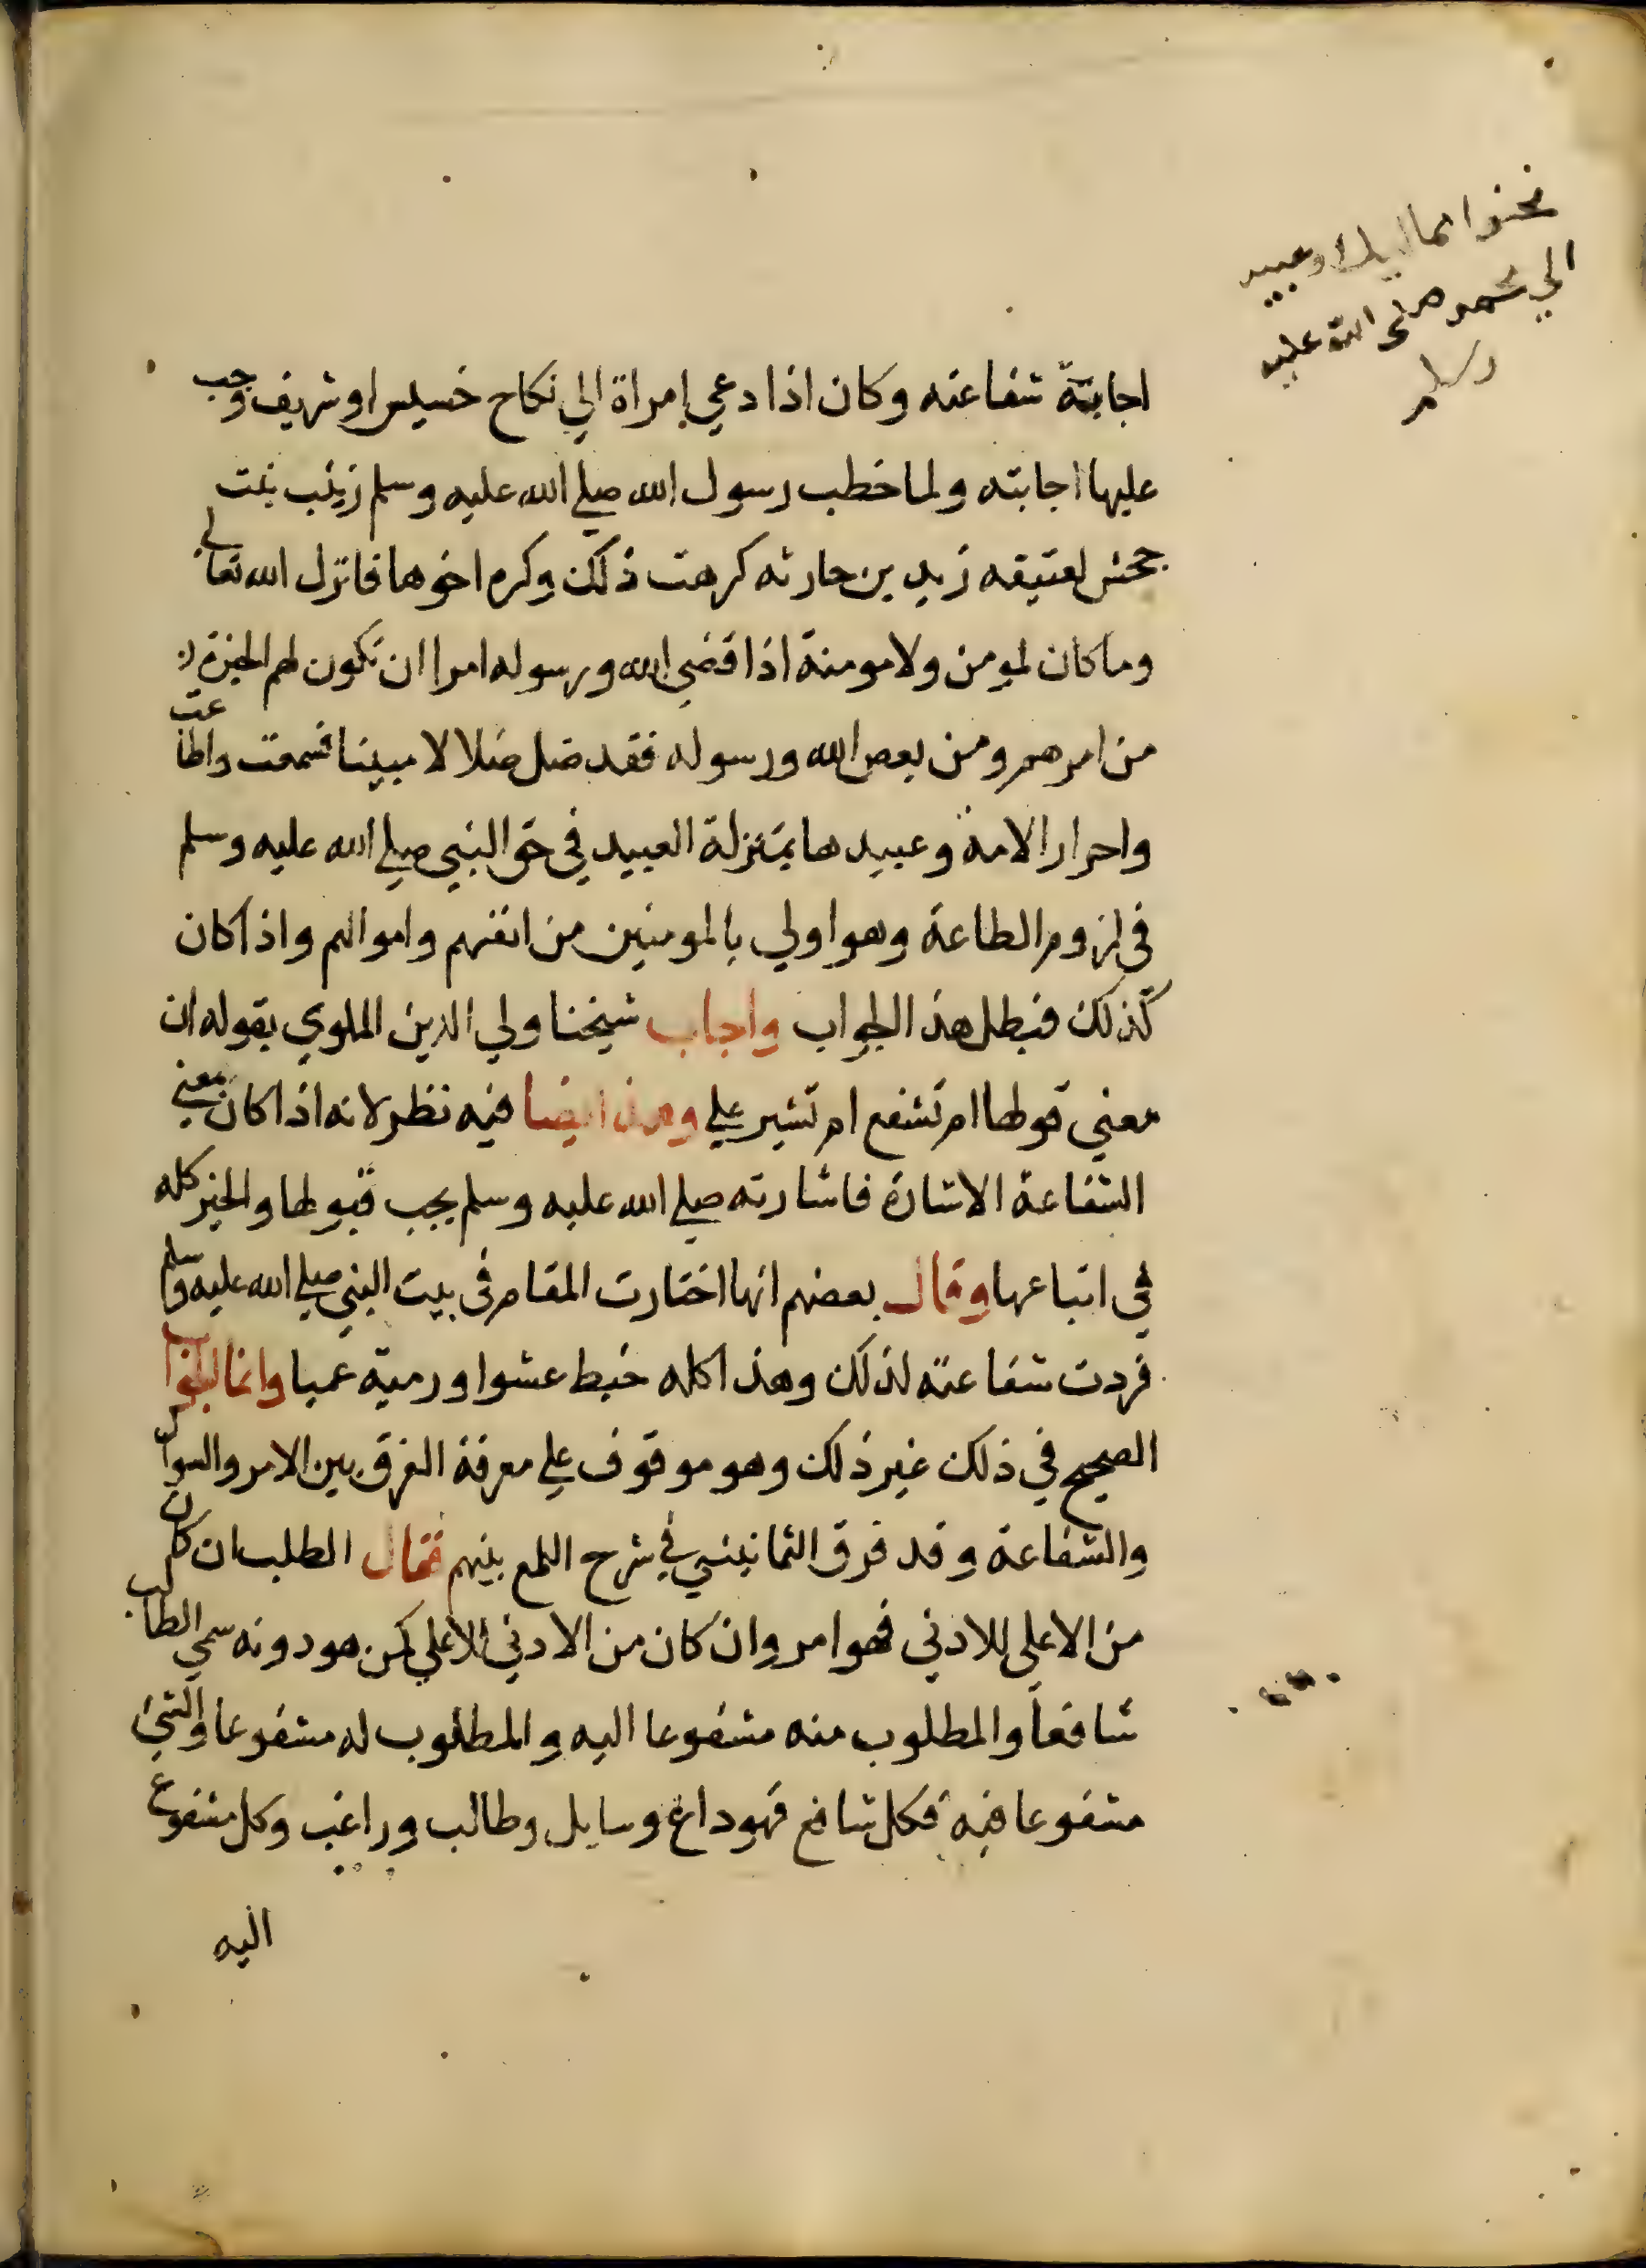 نحنوا مماليك وعبيد
الي محمد صلى الله عليه
وسلم
اجابة شفاعته وكان اذا دعي إمراة الي نكاح خسيس او شريف وجب
عليها اجابته ولما خطب رسول الله صلي الله عليه وسلم زينب بنت
جحش لعتيقه زيد بن حارثه كرهت ذلك وكره اخوها فانزل الله تعالي
وما كان لمومن ولا مومنة اذا قضي الله ورسوله امرا ان تكون لهم الخيرة
من امرهم ومن يعص الله ورسوله فقد ضل ضلالا مبينا فسمعت واطاعت
واحرار الامة وعبيدها بمنزلة العبيد في حق النبي صلي الله عليه وسلم
في لزوم الطاعة وهو اولي بالمومنين من انفسهم واموالهم واذا كان
كذلك فبطل هذ الجواب واجاب شيخنا ولي الدين الملوي بقوله ان
معني قولها ام تشفع ام تشير علي وهذا ايضا فيه نظر لانه اذا كان معني
الشفاعة الاشارة فاشارته صلي الله عليه وسلم يجب قبولها والخير كله
في اتباعها وقال بعضهم انها اختارت المقام في بيت النبي صلي الله عليه وسلم
فردت شفاعته لذلك وهذا كله خبط عشوا ورمية عميا وانما الجواب
الصحيح في ذلك غير ذلك وهو موقوف علي معرفة الفرق بين الامر والسوال
والشفاعة وقد فرق الثمانيني في شرح اللمع بينهم فقال الطلب ان كان
من الاعلي للادني فهو امر وان كان من الادني للاعلي لكن هو دونه سمي الطالب
شافعا والمطلوب منه مشفوعا اليه والمطلوب له مشفوعا والشي
مشفوعا فيه فكل شافع فهو داع وسايل وطالب وراغب وكل مشفوع
اليه